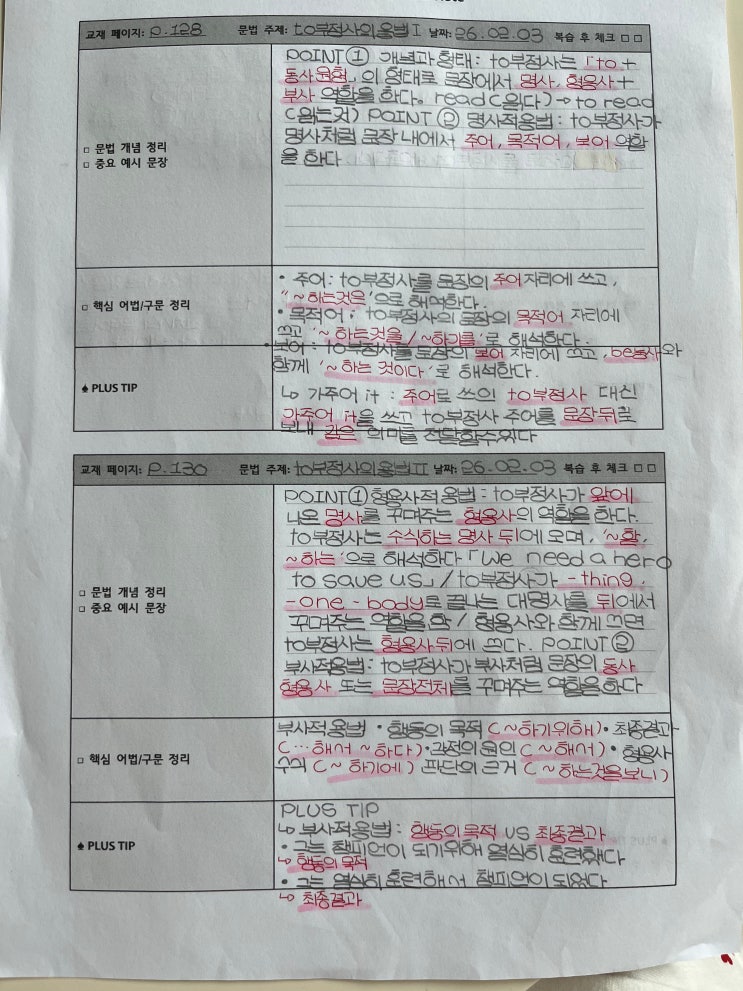 교재 페이지: p.128 문법 주제: to부정사의 용법 I 날짜: 26.02.03 복습 후 체크 □ □
□ 문법 개념 정리
□ 중요 예시 문장
POINT ① 개념과 형태 : to부정사는 「to +
동사원형」의 형태로 문장에서 명사, 형용사 +
부사 역할을 한다. read (읽다) → to read
(읽는것) POINT ② 명사적용법 : to부정사가
명사처럼 문장 내에서 주어, 목적어, 보어 역할
을 한다
□ 핵심 어법/구문 정리
• 주어 : to부정사를 문장의 주어 자리에 쓰고,
"~하는것은'으로 해석한다.
• 목적어 : to부정사의 문장의 목적어 자리에
쓰고 '~하는것을/~하기를'로 해석한다.
• 보어 : to부정사를 문장의 보어 자리에 쓰고, be동사와
함께 '~하는 것이다'로 해석한다.
♠ PLUS TIP
↳ 가주어 it : 주어로 쓰의 to부정사 대신
가주어 it을 쓰고 to부정사 주어를 문장 뒤로
보내 같은 의미를 전달할수있다
교재 페이지: p.130 문법 주제: to부정사의 용법 II 날짜: 26.02.03 복습 후 체크 □ □
□ 문법 개념 정리
□ 중요 예시 문장
POINT ① 형용사적 용법 : to부정사가 앞에
나온 명사를 꾸며주는 형용사의 역할을 한다.
to부정사는 수식하는 명사 뒤에 오며, '~할,
~하는'으로 해석한다 「We need a hero
to save us」 / to부정사가 -thing,
-one -body로 끝나는 대명사를 뒤에서
꾸며주는 역할을 함 / 형용사와 함께 쓰면
to부정사는 형용사 뒤에 쓴다. POINT ②
부사적용법 : to부정사가 부사처럼 문장의 동사
형용사 또는 문장전체를 꾸며주는 역할을 한다
□ 핵심 어법/구문 정리
부사적용법 • 행동의 목적 (~하기위해) • 최종결과
(…해서 ~하다) • 감정의 원인 (~해서) • 형용사
수식 (~하기에) 판단의 근거 (~하는것을보니)
♠ PLUS TIP
PLUS TIP
↳ 부사적용법 : 행동의 목적 VS 최종결과
• 그는 챔피언이 되기위해 열심히 훈련했다
↳ 행동의 목적
• 그는 열심히 훈련해서 챔피언이 되었다
↳ 최종결과